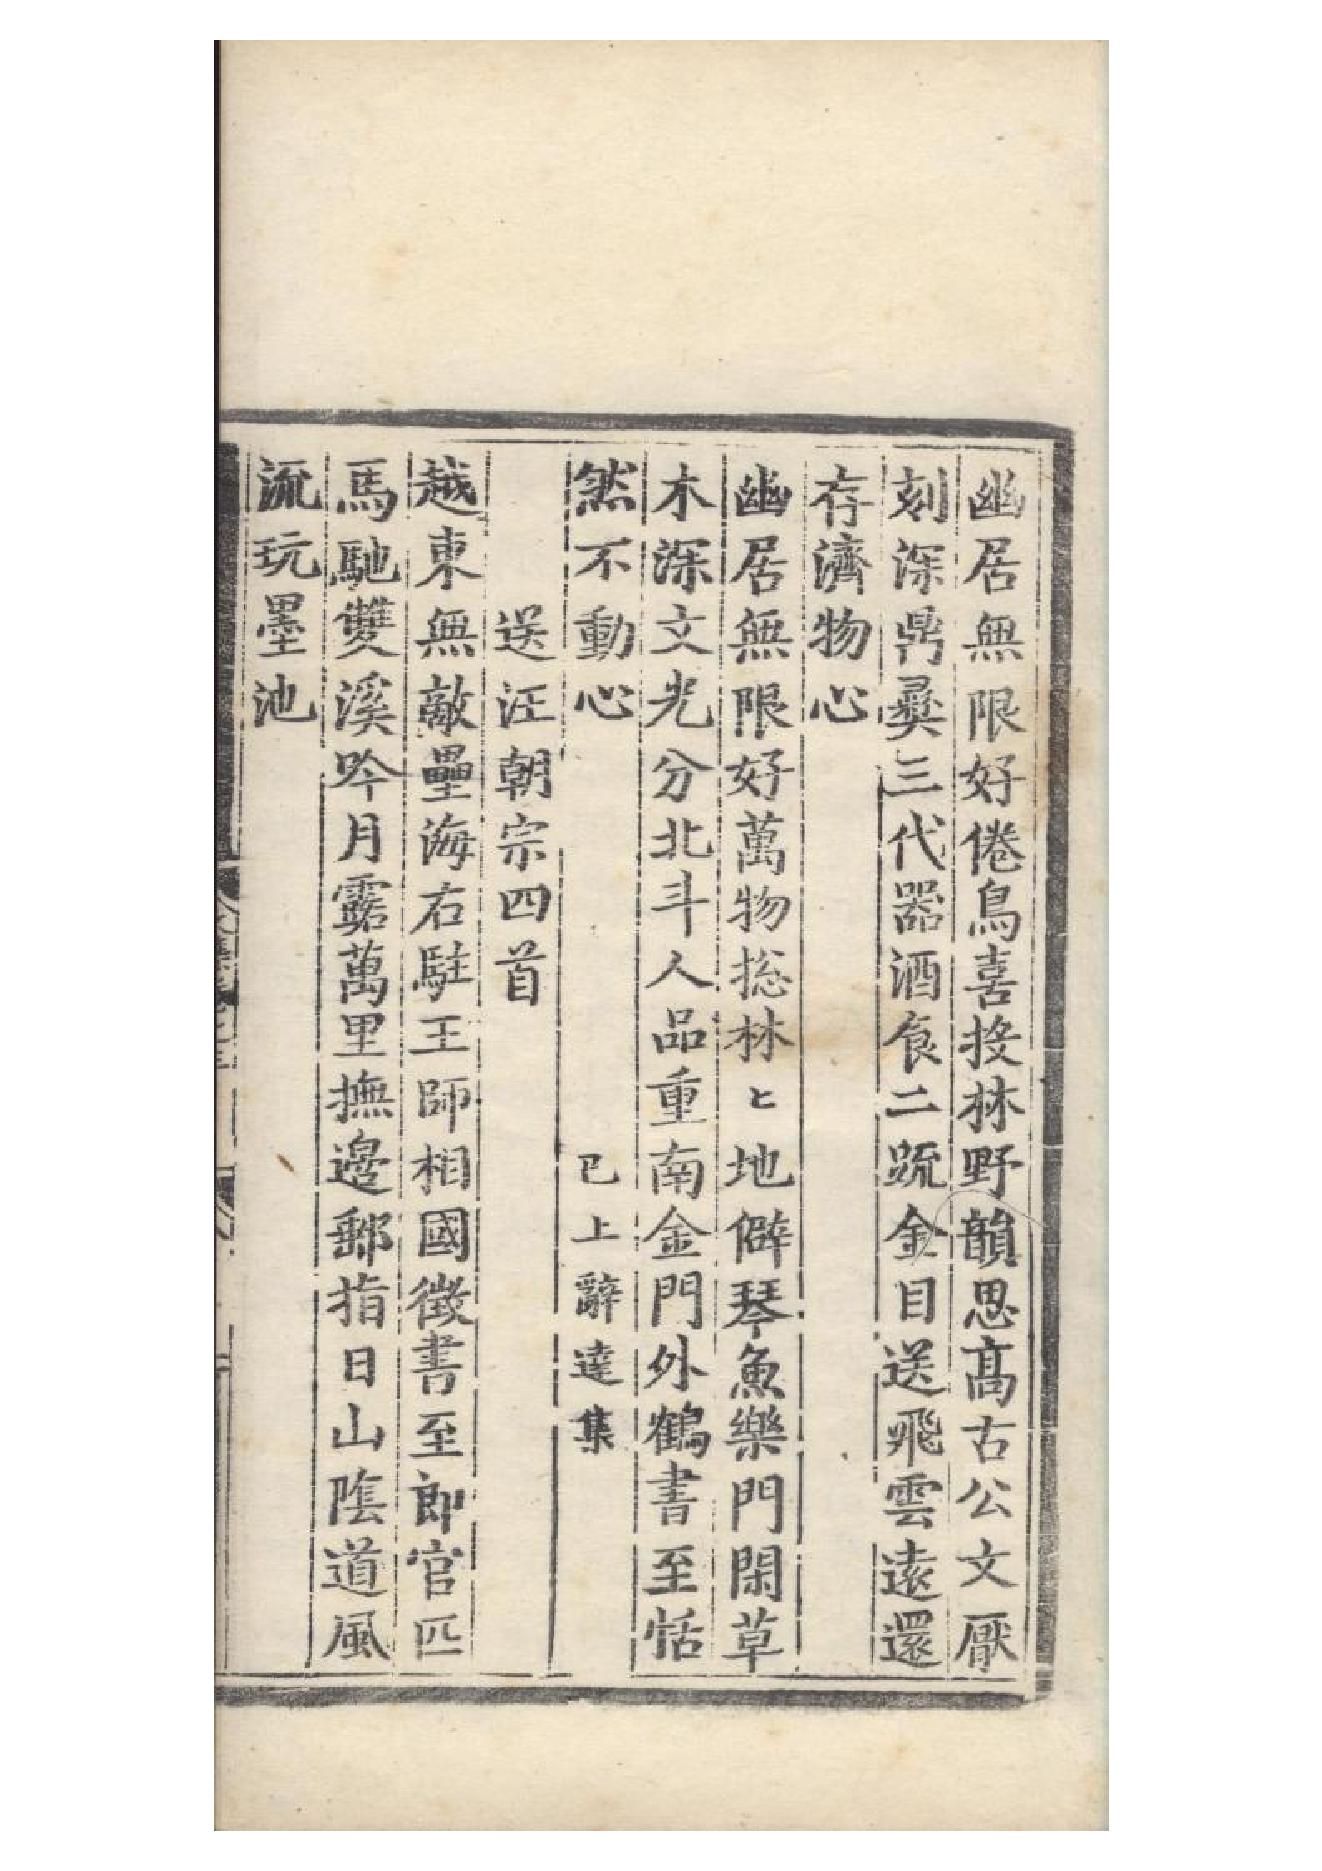 幽居無限好倦鳥喜投林野韻思高古公文厭
刻深鼎彛三代器酒食二䟽金目送飛雲遠還
存濟物心
幽居無限好萬物揔林〻地僻琴魚樂門閑草
木深文光分北斗人品重南金門外鶴書至恬
然不動心　已上辭達集
送汪朝宗四首
越東無敵壘海右駐王師相國徴書至郎官匹
馬馳雙溪吟月露萬里撫邊郵指日山隂道風
流玩墨池